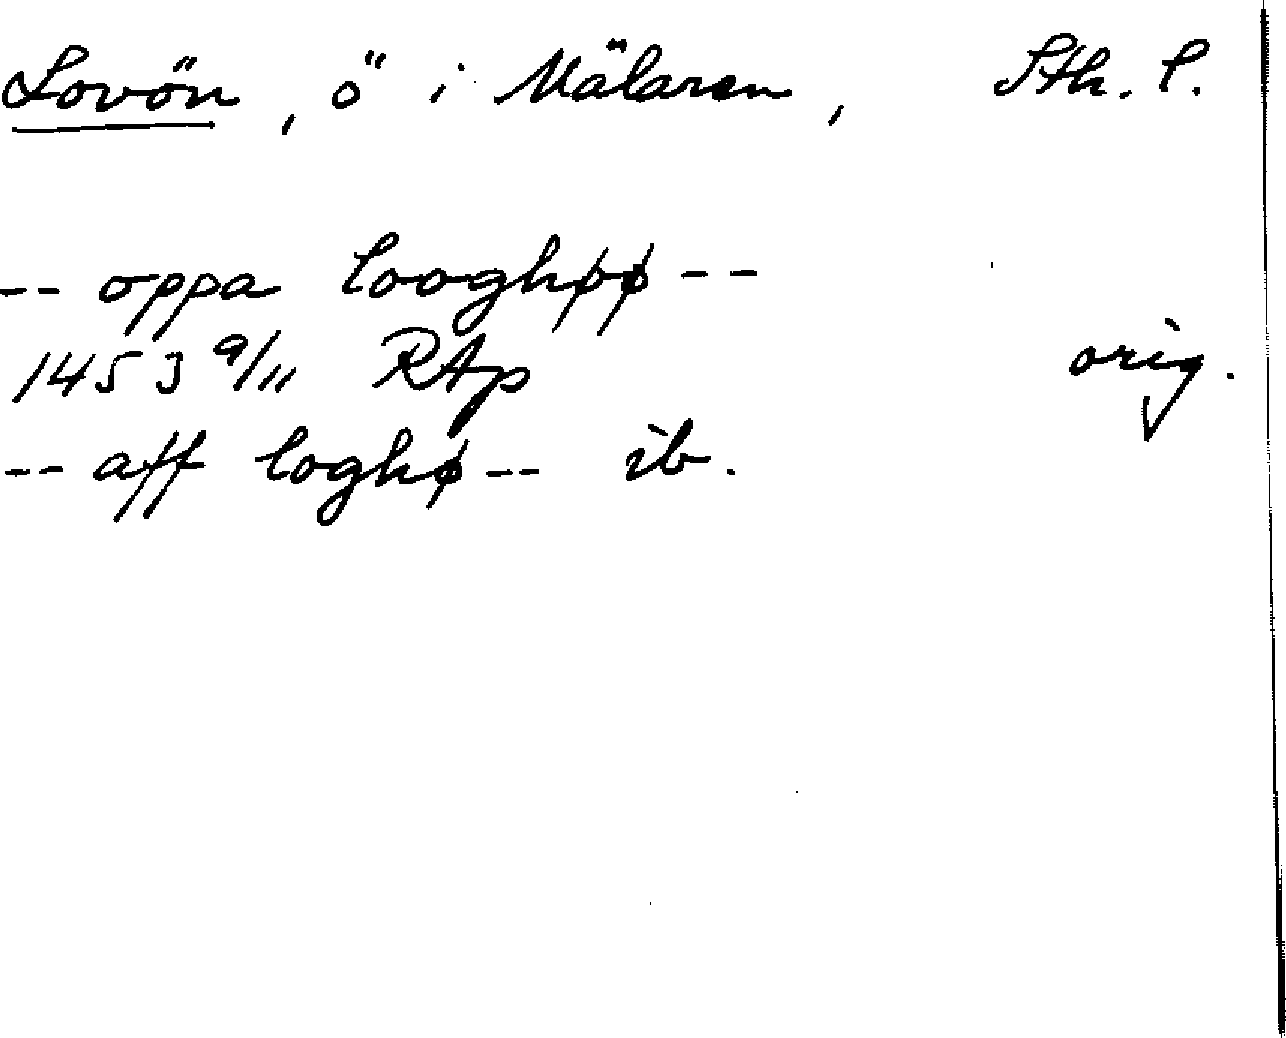 Lovön, ö i Mälaren, Sth. l.
-- oppa looghøø --
1453 9/11 RAp orig.
-- aff loghø -- ib.